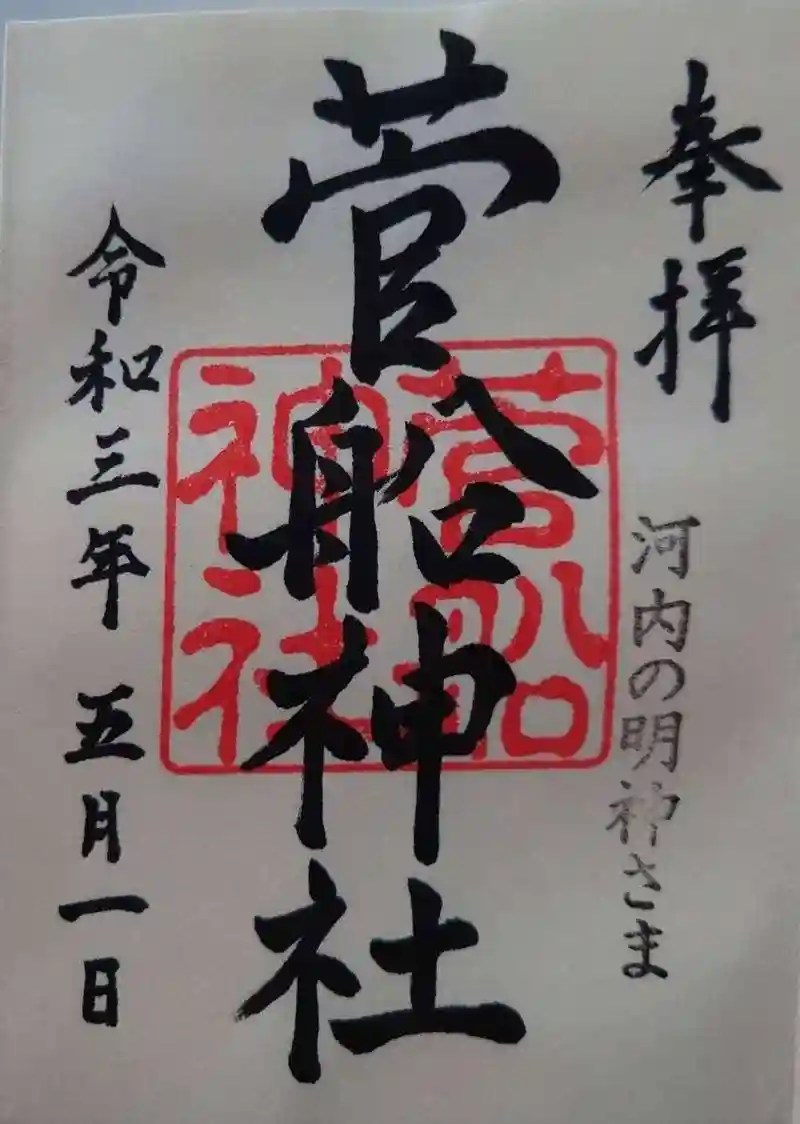 奉拝
河内の明神さま
菅船神社
菅船
神社
令和三年 五月一日